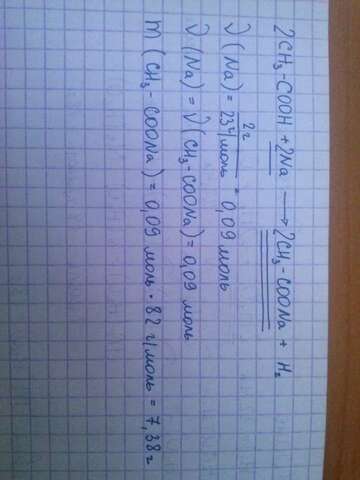 2CH₃-COOH + 2Na → 2CH₃-COONa + H₂
ν(Na) = 2г / 23г/моль = 0,09 моль
ν(Na) = ν(CH₃-COONa) = 0,09 моль
m(CH₃-COONa) = 0,09 моль · 82 г/моль = 7,38г